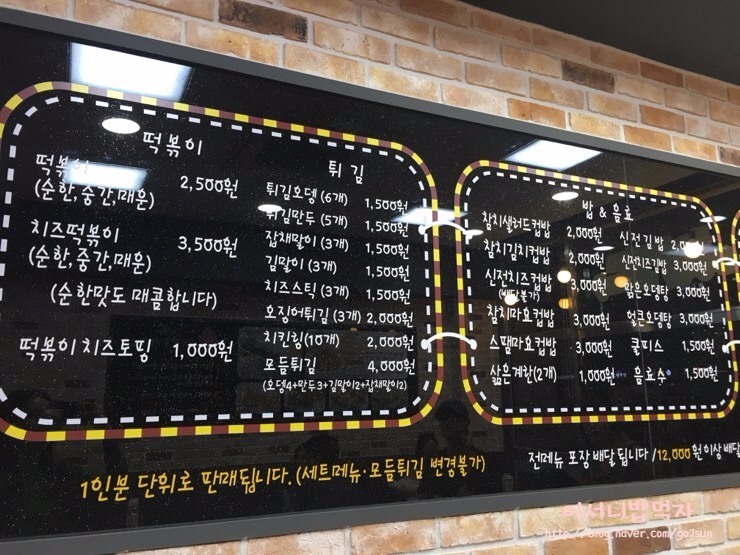 떡볶이
떡볶이 2,500원
(순한,중간,매훈)
치즈떡볶이 3,500원
(순한,중간,매훈)
(순한맛도 매콤합니다)
떡볶이 치즈토핑 1,000원
튀김
튀김오뎅 (6개) 1,500원
튀김만두 (5개) 1,500원
잡채말이 (3개) 1,500원
김말이 (3개) 1,500원
치즈스틱 (3개) 1,500원
오징어튀김 (3개) 2,000원
치킨링(10개) 2,000원
모듬튀김 4,000원
(오뎅4+만두3+김말이2+잡채말이2)
밥 & 음료
참치샐러드컵밥 2,000원
참치김치컵밥 2,000원
신전치즈컵밥 3,000원
(배달불가)
참치마요컵밥 3,000원
스팸마요컵밥 3,000원
삶은계란(2개) 1,000원
신전김밥
신전치즈김밥 3,000원
맑은오뎅탕 3,000원
얼큰오뎅탕 3,000원
쿨피스 1,500원
음료수 1,500원
1인분 단위로 판매됩니다. (세트메뉴·모듬튀김 변경불가)
전메뉴 포장 배달 됩니다 /12,000원이상 배달
어서니밥먹자
http://blog.naver.com/go7sun